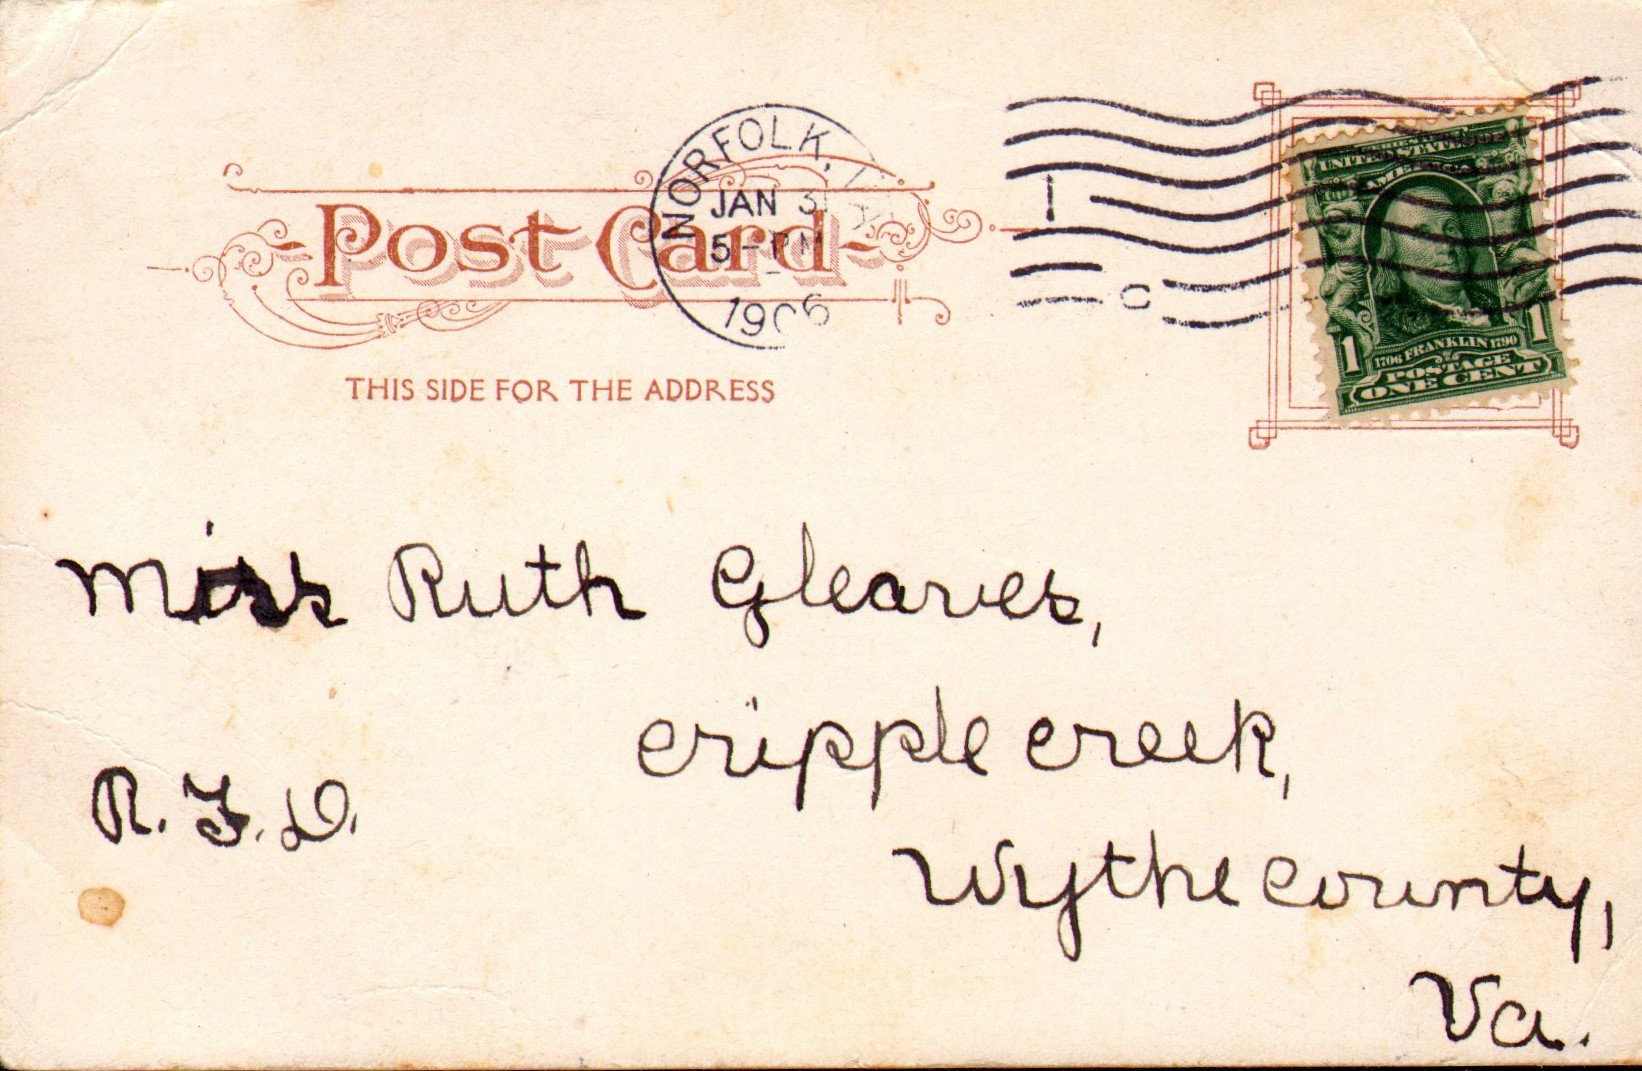 NORFOLK, VA
JAN 31
5 - PM
1906
1
C
Post Card
THIS SIDE FOR THE ADDRESS
UNITED STATES OF AMERICA
1706 FRANKLIN 1790
POSTAGE
1 ONE CENT 1
Miss Ruth Gleaves,
Cripple Creek,
R. F. D.
Wythe County,
Va.